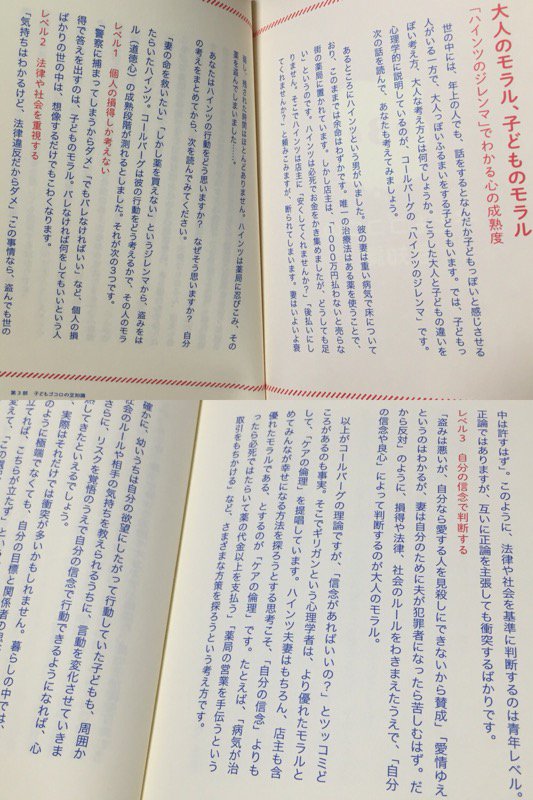 大人のモラル、子どものモラル
「ハインツのジレンマ」でわかる心の成熟度
世の中には、年上の人でも、話をするとなんだか子どもっぽいと感じさせる
人がいる一方で、大人っぽいふるまいをする子どももいます。では、子どもっ
ぽい考え方、大人な考え方とは何でしょうか。こうした大人と子どもの違いを
心理学的に説明しているのが、コールバーグの「ハインツのジレンマ」です。
次の話を読んで、あなたも考えてみましょう。
あるところにハインツという男がいました。彼の妻は重い病気で床について
おり、このままでは余命はわずかです。唯一の治療法はある薬を使うことで、
街の薬局に置かれています。しかし店主は、「1000万円払わないと売らな
い」というのです。ハインツは必死でお金をかき集めましたが、どうしても足
りません。そこでハインツは店主に「安くしてくれませんか?」「後払いにし
てくれませんか?」と頼みこみますが、断られてしまいます。妻はいよいよ衰
弱し、残された時間はほとんどありません。ハインツは薬局に忍びこみ、その
薬を盗んでしまいました……。
あなたはハインツの行動をどう思いますか? なぜそう思いますか? 自分
の考えをまとめてから、次を読んでみてください。
「妻の命を救いたい」「しかし薬を買えない」というジレンマから、盗みをは
たらいたハインツ。コールバーグは彼の行動をどう考えるかで、その人のモラ
ル(道徳心)の成熟段階が測れるとしました。それが次の3つです。
レベル1 個人の損得しか考えない
「警察に捕まってしまうからダメ」「でもバレなければいい」など、個人の損
得で答えを出すのは、子どものモラル。バレなければ何をしてもいいという人
ばかりの世の中は、想像するだけでもこわくなります。
レベル2 法律や社会を重視する
「気持ちはわかるけど、法律違反だからダメ」「この事情なら、盗んでも世の
第3部 子どもゴコロの豆知識
中は許すはず」。このように、法律や社会を基準に判断するのは青年レベル。
正論ではありますが、互いに正論を主張しても衝突するばかりです。
レベル3 自分の信念で判断する
「盗みは悪いが、自分なら愛する人を見殺しにできないから賛成」「愛情ゆえ
というのはわかるが、妻は自分のために夫が犯罪者になったら苦しむはず。だ
から反対」のように、損得や法律、社会のルールをわきまえたうえで、「自分
の信念や良心」によって判断するのが大人のモラル。
以上がコールバーグの理論ですが、「信念があればいいの?」とツッコミど
ころがあるのも事実。そこでギリガンという心理学者は、より優れたモラルと
して、「ケアの倫理」を提唱しています。ハインツ夫妻はもちろん、店主も含
めてみんなが幸せになる方法を探ろうとする思考こそ、「自分の信念」よりも
優れたモラルである、とするのが「ケアの倫理」です。たとえば、「病気が治
ったら必死ではたらいて薬の代金以上を支払う」「薬局の営業を手伝うという
取引をもちかける」など、さまざまな方策を探ろうという考え方です。
確かに、幼いうちは自分の欲望にしたがって行動していた子どもも、周囲か
社会のルールや相手の気持ちを教えられるうちに、言動を変化させていきま
さらに、リスクを覚悟のうえで自分の信念で行動できるようになれば、心
熟してきたといえるでしょう。
、実際はそれだけでは衝突が多いかもしれません。暮らしの中では、
のように極端でなくても、自分の目標と関係者の
立てれば、こちらが立たず」という